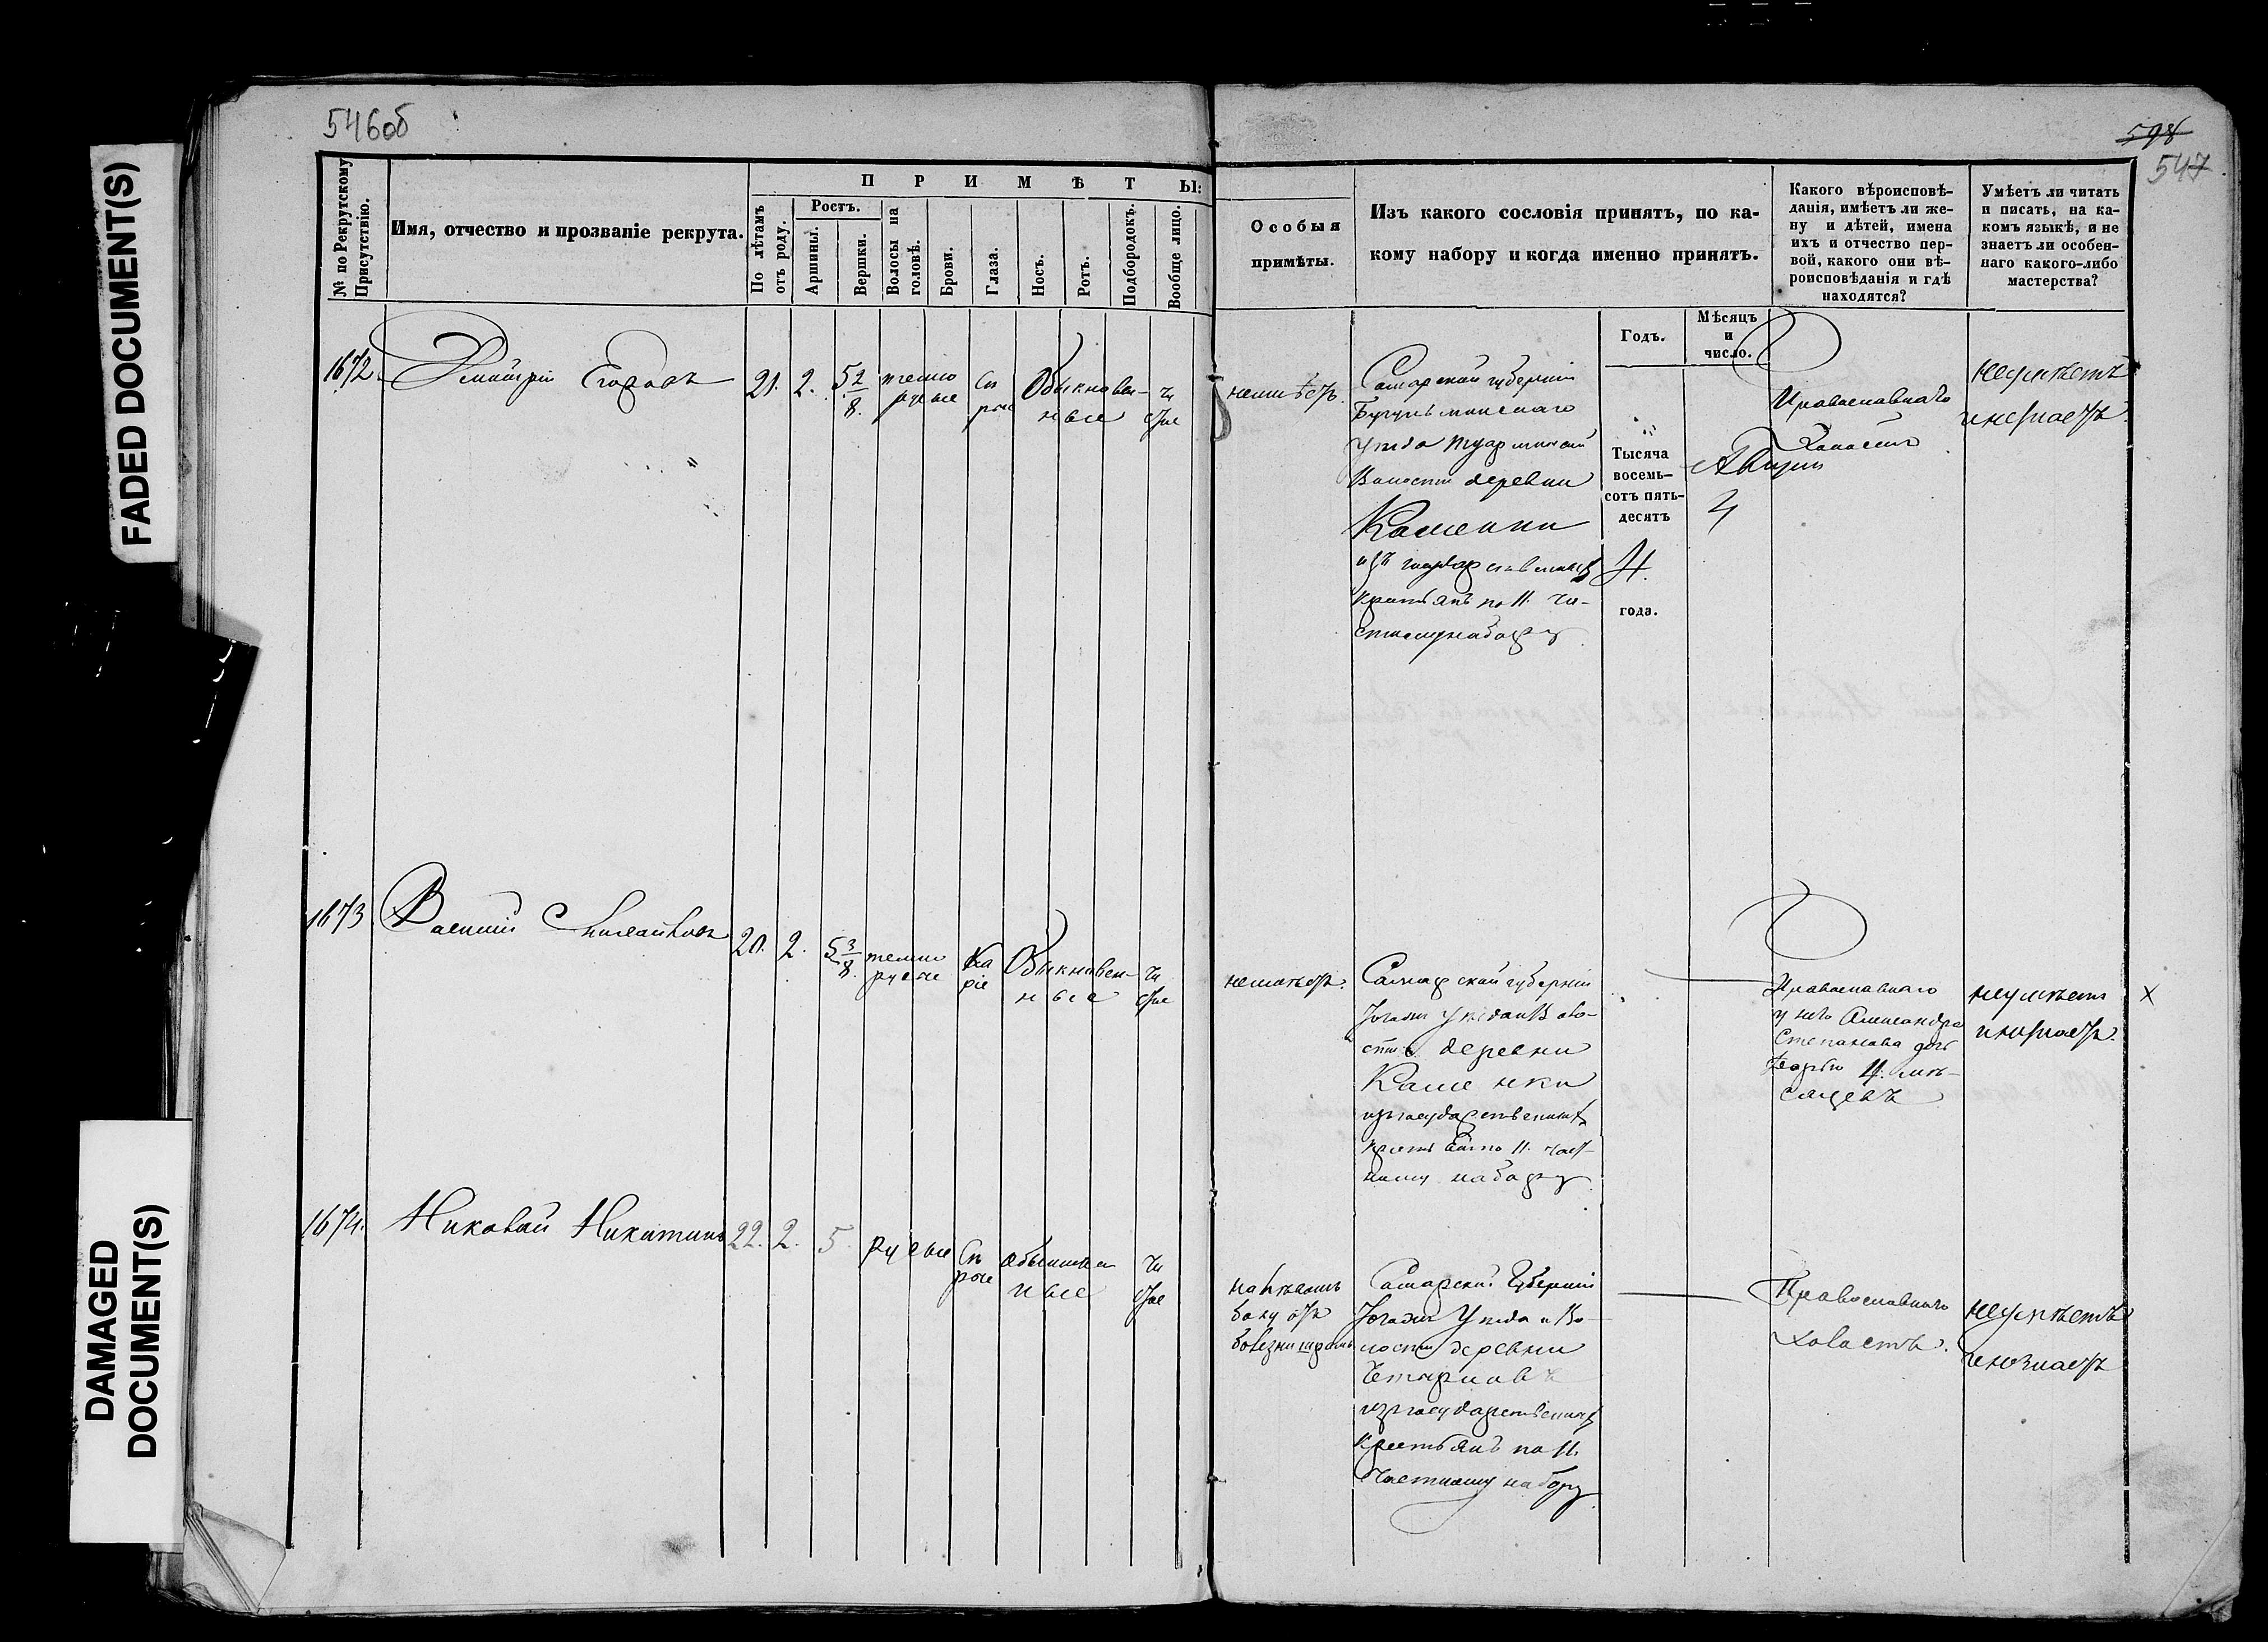 546об
598
547
FADED DOCUMENT(S)
DAMAGED
DOCUMENT(S)
№ по Рекрутскому
Присутствію.
Имя, отчество и прозваніе рекрута.
ПРИМѢТЫ:
По лѣтамъ
отъ роду.
Ростъ.
Аршины.
Вершки.
Волосы на
головѣ.
Брови.
Глаза.
Носъ.
Ротъ.
Подбородокъ.
Вообще лицо.
Особыя
примѣты.
Изъ какого сословія принятъ, по ка-
кому набору и когда именно принятъ.
Какого вѣроисповѣ-
данія, имѣетъ ли же-
ну и дѣтей, имена
ихъ и отчество пер-
вой, какого они вѣ-
роисповѣданія и гдѣ
находятся?
Умѣетъ ли читать
и писать, на ка-
комъ языкѣ, и не
знаетъ ли особен-
наго какого-либо
мастерства?
Годъ.
Мѣсяцъ
и
число.
1672. Дмитрій Егоровъ 21. 2. 5 2/8. темно
русые
Сѣ
рые
Обыкновен-
ные
чи
стое
неимѣетъ.
Самарской губерніи
Бугульминскаго
уѣзда
Волости деревни
Каменки
изъ государственныхъ
крестьянъ по 11. ча-
стному набору
Тысяча
восемь-
сотъ пять-
десятъ
4.
года.
4
Православнаго
Холостъ
неумѣетъ
и незнаетъ.
1673. Василій 20. 2. 5 3/8. темно
русые
Ка
ріе
Обыкновен-
ные
чи
стое
неимѣетъ.
Самарской губерніи
Тогоже уѣзда и Воло-
сти деревни
Каменки
изъ государственныхъ
крестьянъ по 11. част-
ному набору
Православнаго
у него Александра
Степанова дочь
4. мѣ-
сяцевъ
неумѣетъ
и незнаетъ.
X
1674. Николай Никитинъ 22. 2. 5. русые
Сѣ
рые
обыкновен
ные
чи
стое
на лѣвомъ
боку отъ
болезни шрамъ
Самарской Губерніи
Тогоже Уѣзда и Во-
лости деревни
изъ государственныхъ
крестьянъ по 11.
Частному набору
Православнаго
холостъ.
неумѣетъ
и незнаетъ